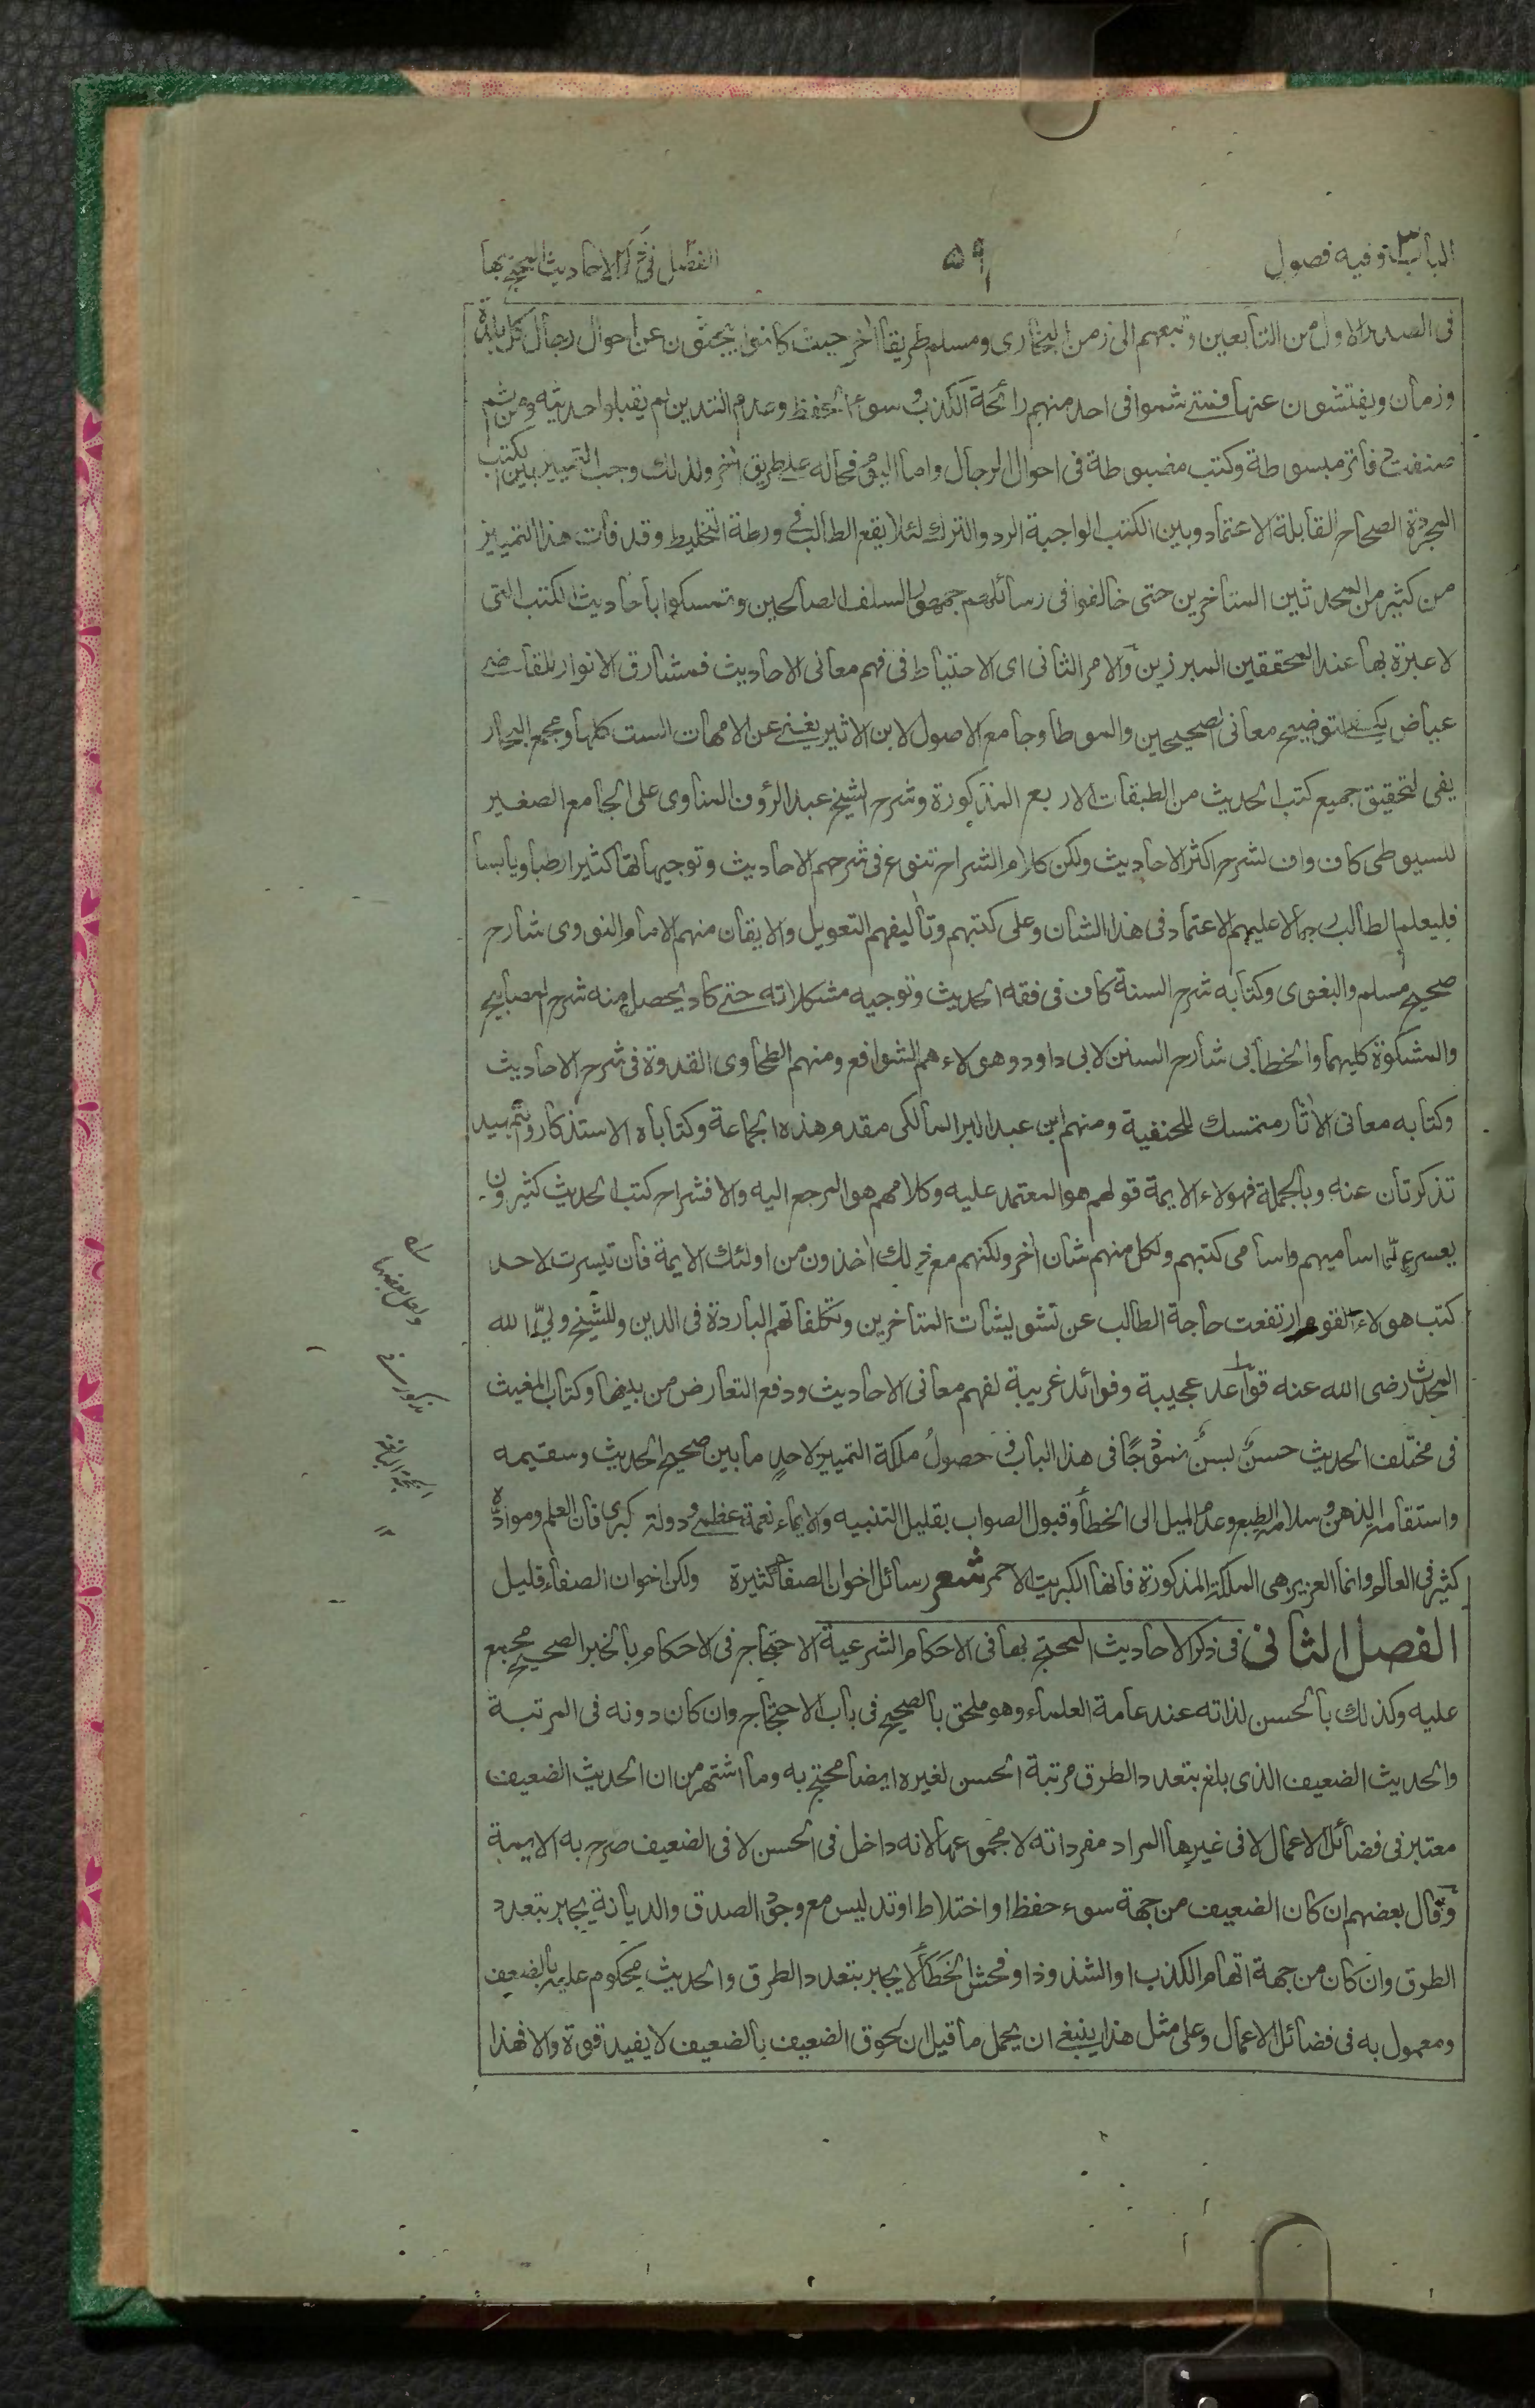 الباب ٣ وفيه فصول
٥٩
الفصل فى ذكر الاحاديث المحتج بها
فى الصدر الاول من التابعين وتبعهم الى زمن البخارى ومسلم طريقا اخر حيث كانوا يبحثون عن احوال رجال كل بلدة
وزمان ويفتشون عنها فمتى شموا فى احد منهم رائحة الكذب وسوء الحفظ وعدم التدين لم يقبلوا حديثه ومن ثم
صنفت دفاتر مبسوطة وكتب مضبوطة فى احوال الرجال واما اليوم فحاله على طريق اخر ولذلك وجب التمييز بين الكتب
المجردة الصحاح القابلة الاعتماد وبين الكتب الواجبة الرد والترك لئلا يقع الطالب فى ورطة التخليط وقد فات هذا التمييز
من كثير من المحدثين المتاخرين حتى خالفوا فى رسائلهم جمهور السلف الصالحين وتمسكوا باحاديث الكتب التى
لا عبرة بها عند المحققين المبرزين والامر الثانى اى الاحتياط فى فهم معانى الاحاديث فمشارق الانوار للقاضى
عياض يكفى لتوضيح معانى الصحيحين والموطا وجامع الاصول لابن الاثير يغنى عن الامهات الست كلها ومجمع البحار
يفى لتحقيق جميع كتب الحديث من الطبقات الاربع المذكورة وشرح الشيخ عبد الرؤف المناوى على الجامع الصغير
للسيوطى كاف واف لشرح اكثر الاحاديث ولكن كلام الشراح تنوع فى شرحهم الاحاديث وتوجيهاتها كثيرا رطبا ويابسا
فليعلم الطالب رجالا عليهم الاعتماد فى هذا الشان وعلى كتبهم وتاليفهم التعويل والايقان منهم الامام النووى شارح
صحيح مسلم والبغوى وكتابه شرح السنة كاف فى فقه الحديث وتوجيه مشكلاته حتى كاد يحصل منه شرح المصابيح
والمشكوة كليهما والخطابى شارح السنن لابى داود وهولاء هم الشوافع ومنهم الطحاوى القدوة فى شرح الاحاديث
وكتابه معانى الاثار متمسك للحنفية ومنهم ابن عبد البر المالكى مقدم هذه الجماعة وكتاباه الاستذكار وتمهيد
تذكرتان عنه وبالجملة فهولاء الايمة قولهم هو المعتمد عليه وكلامهم هو المرجع اليه والا فشراح كتب الحديث كثيرون
يعسر عد اساميهم واسامى كتبهم ولكل منهم شان اخر ولكنهم مع ذلك اخذون من اولئك الايمة فان تيسرت لاحد
كتب هولاء القوم ارتفعت حاجة الطالب عن تشويشات المتاخرين وتكلفاتهم الباردة فى الدين وللشيخ ولى الله
المحدث رضى الله عنه قواعد عجيبة وفوائد غريبة لفهم معانى الاحاديث ودفع التعارض من بينها وكتاب المغيث
فى مختلف الحديث حسن بسن نموذجا فى هذا الباب وحصول ملكة التمييز لاحد ما بين صحيح الحديث وسقيمه
واستقامة الذهن وسلامة الطبع وعدم الميل الى الخطا وقبول الصواب بقليل التنبيه والايماء نعمة عظمى ودولة كبرى فان العلم ومواده
كثير فى العالم وانما العزيز هى الملكة المذكورة فانها الكبريت الاحمر شعر رسائل اخوان الصفا كثيرة ولكن اخوان الصفاء قليل
الفصل الثانى فى ذكر الاحاديث المحتج بها فى الاحكام الشرعية الاحتجاج فى الاحكام بالخبر الصحيح مجمع
عليه وكذلك بالحسن لذاته عند عامة العلماء وهو ملحق بالصحيح فى باب الاحتجاج وان كان دونه فى المرتبة
والحديث الضعيف الذى بلغ بتعدد الطرق مرتبة الحسن لغيره ايضا محتج به وما اشتهر من ان الحديث الضعيف
معتبر فى فضائل الاعمال لا فى غيرها المراد مفرداته لا مجموعها لانه داخل فى الحسن لا فى الضعيف صرح به الايمة
وقال بعضهم ان كان الضعيف من جهة سوء حفظ او اختلاط او تدليس مع وجود الصدق والديانة يجابر بتعدد
الطرق وان كان من جهة اتهام الكذب او الشذوذ او فحش الخطأ لا يجابر بتعدد الطرق والحديث محكوم عليه بالضعف
ومعمول به فى فضائل الاعمال وعلى مثل هذا ينبغى ان يحمل ما قيل ان لحوق الضعيف بالضعيف لا يفيد قوة والا فهذا
ولعل بعضها
مذكور فى
الحجة البالغة
١٢